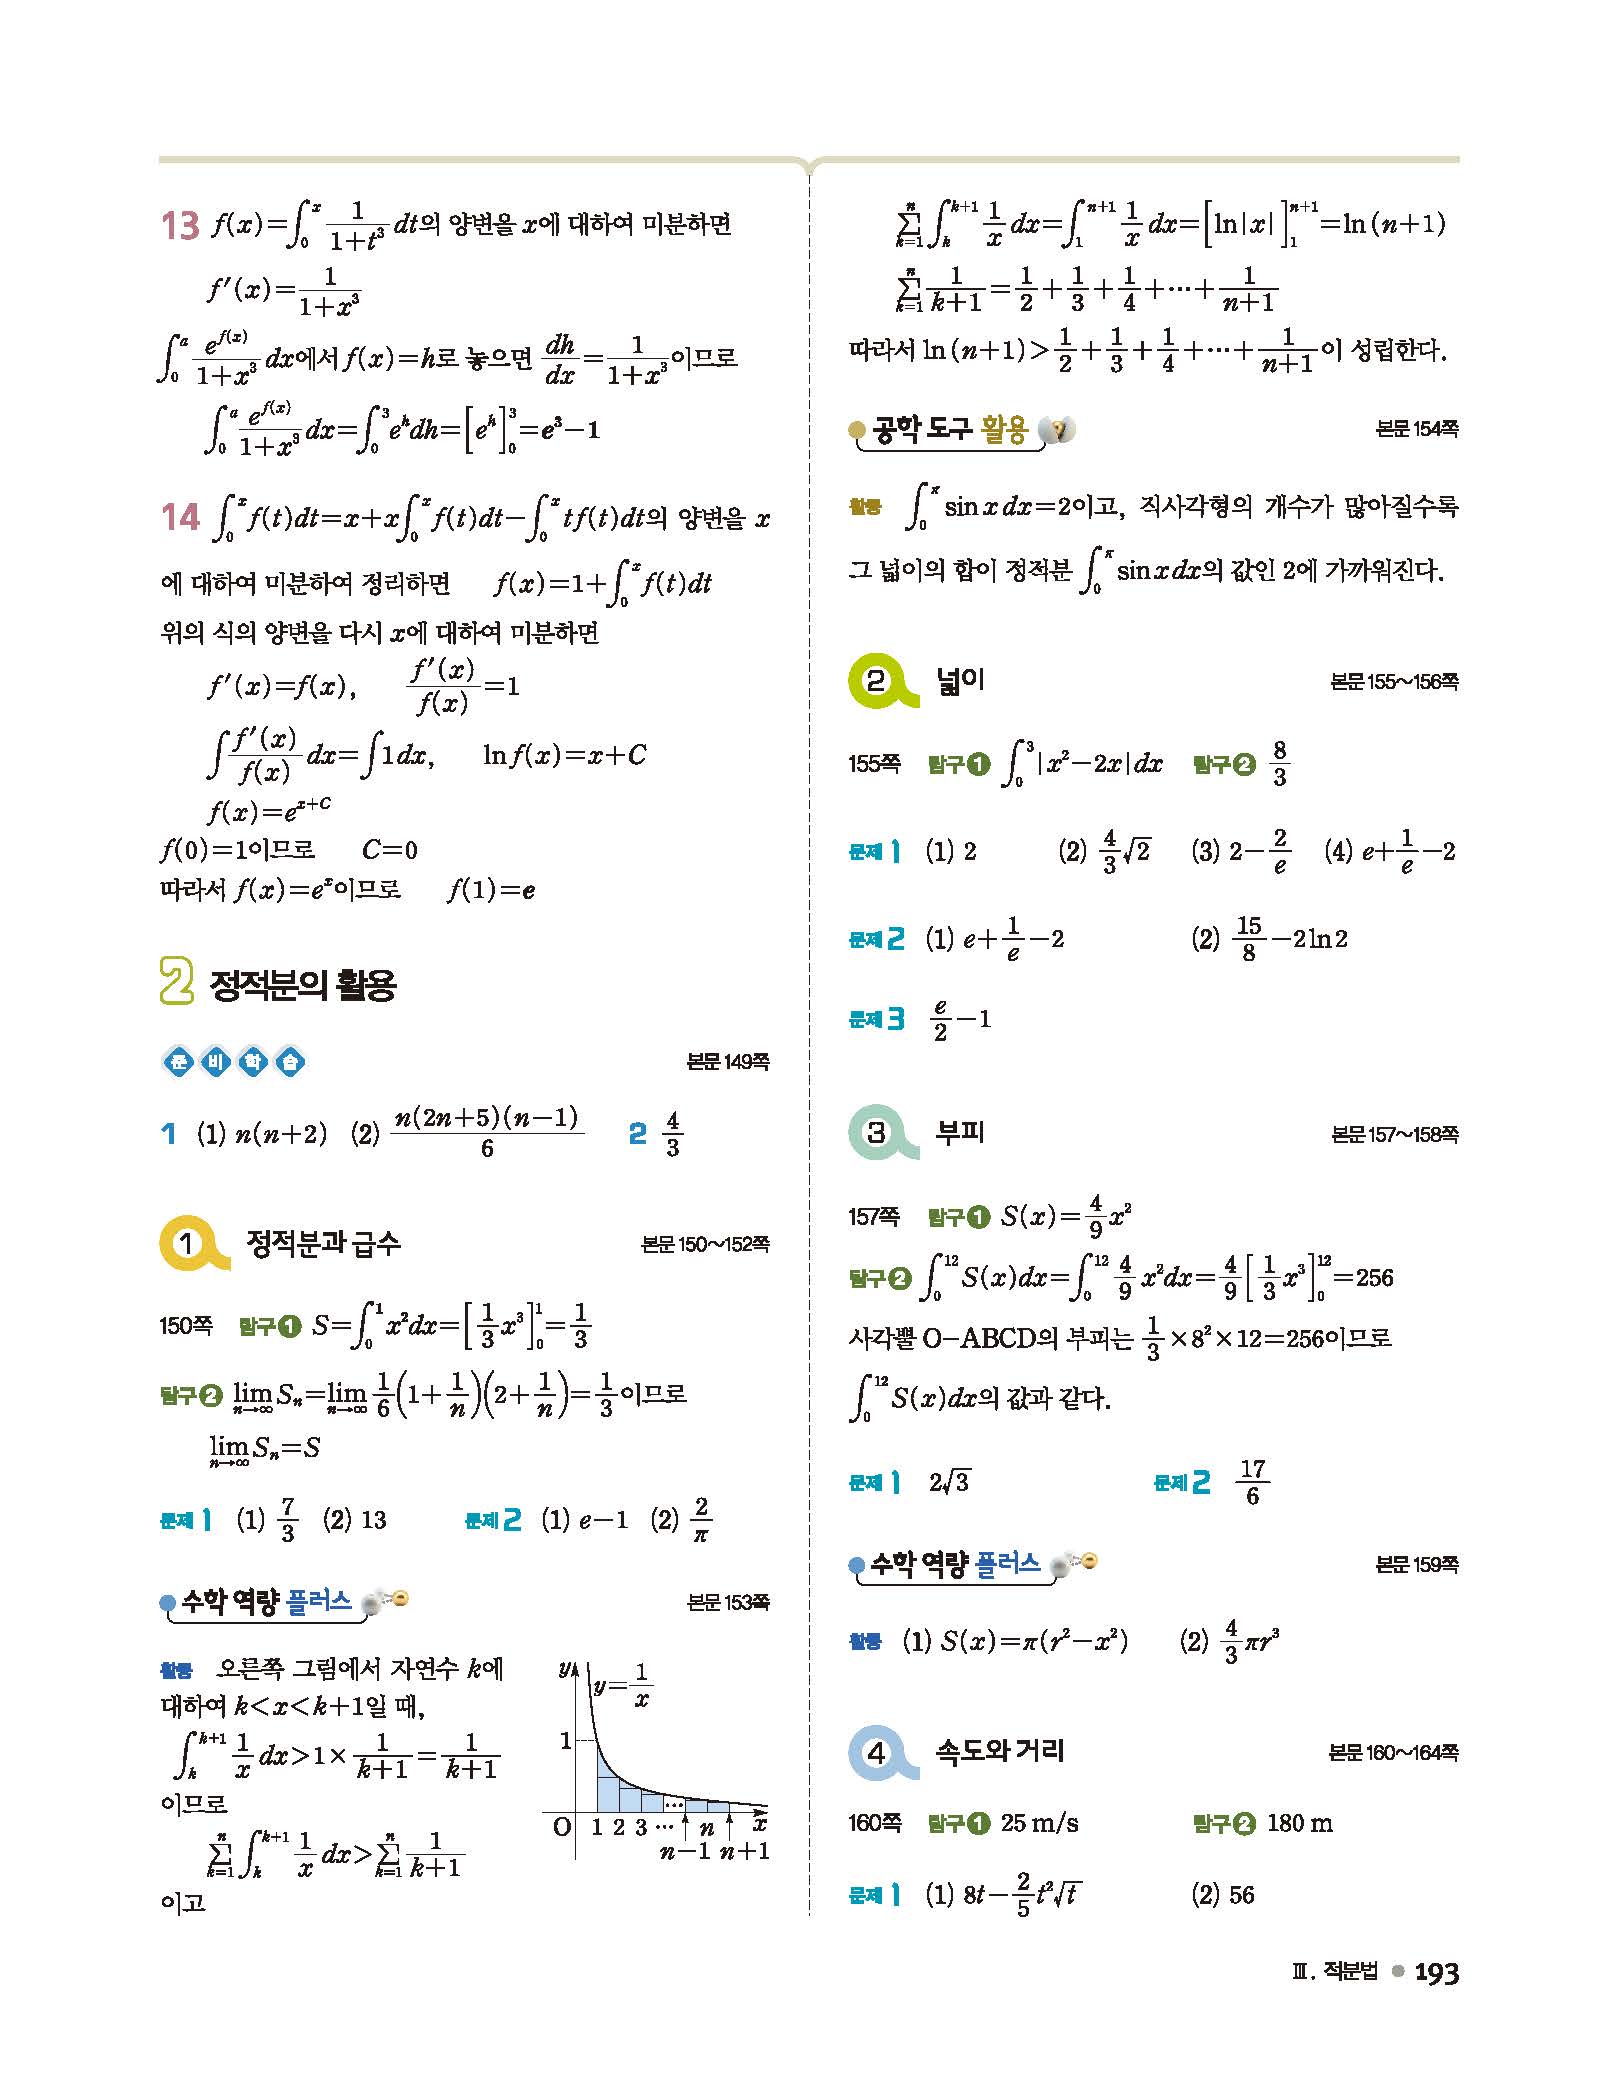 13 f(x)=∫₀ˣ 1/(1+t³) dt의 양변을 x에 대하여 미분하면
f′(x)=1/(1+x³)
∫₀ᵃ e^{f(x)}/(1+x³) dx에서 f(x)=h로 놓으면 dh/dx=1/(1+x³)이므로
∫₀ᵃ e^{f(x)}/(1+x³) dx=∫₀³ eʰdh=[eʰ]₀³=e³−1
14 ∫₀ˣ f(t)dt=x+x∫₀ˣ f(t)dt−∫₀ˣ tf(t)dt의 양변을 x
에 대하여 미분하여 정리하면 f(x)=1+∫₀ˣ f(t)dt
위의 식의 양변을 다시 x에 대하여 미분하면
f′(x)=f(x), f′(x)/f(x)=1
∫ f′(x)/f(x) dx=∫1dx, ln f(x)=x+C
f(x)=e^{x+C}
f(0)=1이므로 C=0
따라서 f(x)=eˣ이므로 f(1)=e
2 정적분의 활용
준비학습 본문 149쪽
1 (1) n(n+2) (2) n(2n+5)(n−1)/6 2 4/3
1 정적분과 급수 본문 150～152쪽
150쪽 탐구❶ S=∫₀¹ x²dx=[1/3 x³]₀¹=1/3
탐구❷ lim_{n→∞} Sₙ=lim_{n→∞} 1/6(1+1/n)(2+1/n)=1/3이므로
lim_{n→∞} Sₙ=S
문제 1 (1) 7/3 (2) 13 문제 2 (1) e−1 (2) 2/π
수학 역량 플러스 본문 153쪽
활동 오른쪽 그림에서 자연수 k에
대하여 k<x<k+1일 때,
∫ₖ^{k+1} 1/x dx>1×1/(k+1)=1/(k+1)
이므로
∑_{k=1}^{n} ∫ₖ^{k+1} 1/x dx>∑_{k=1}^{n} 1/(k+1)
이고
y y=1/x
1
O 1 2 3 ⋯ n x
n−1 n+1
∑_{k=1}^{n} ∫ₖ^{k+1} 1/x dx=∫₁^{n+1} 1/x dx=[ln|x|]₁^{n+1}=ln(n+1)
∑_{k=1}^{n} 1/(k+1)=1/2+1/3+1/4+⋯+1/(n+1)
따라서 ln(n+1)>1/2+1/3+1/4+⋯+1/(n+1)이 성립한다.
공학 도구 활용 본문 154쪽
활동 ∫₀^π sin x dx=2이고, 직사각형의 개수가 많아질수록
그 넓이의 합이 정적분 ∫₀^π sin x dx의 값인 2에 가까워진다.
2 넓이 본문 155～156쪽
155쪽 탐구❶ ∫₀³ |x²−2x|dx 탐구❷ 8/3
문제 1 (1) 2 (2) 4/3√2 (3) 2−2/e (4) e+1/e−2
문제 2 (1) e+1/e−2 (2) 15/8−2 ln 2
문제 3 e/2−1
3 부피 본문 157～158쪽
157쪽 탐구❶ S(x)=4/9 x²
탐구❷ ∫₀¹² S(x)dx=∫₀¹² 4/9 x²dx=4/9[1/3 x³]₀¹²=256
사각뿔 O−ABCD의 부피는 1/3×8²×12=256이므로
∫₀¹² S(x)dx의 값과 같다.
문제 1 2√3 문제 2 17/6
수학 역량 플러스 본문 159쪽
활동 (1) S(x)=π(r²−x²) (2) 4/3 πr³
4 속도와 거리 본문 160～164쪽
160쪽 탐구❶ 25 m/s 탐구❷ 180 m
문제 1 (1) 8t−2/5 t²√t (2) 56
Ⅲ. 적분법 ● 193